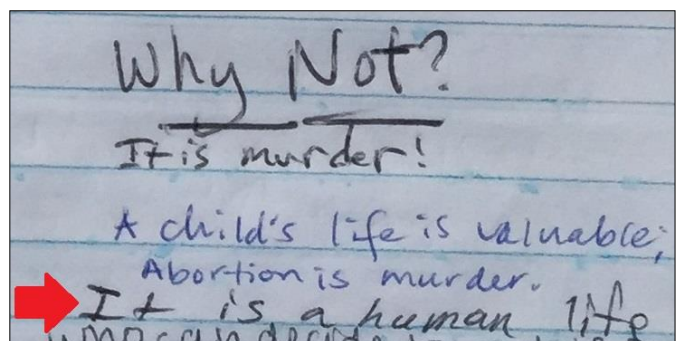 Why Not?
It is murder!
A child's life is valuable;
Abortion is murder.
It is a human life